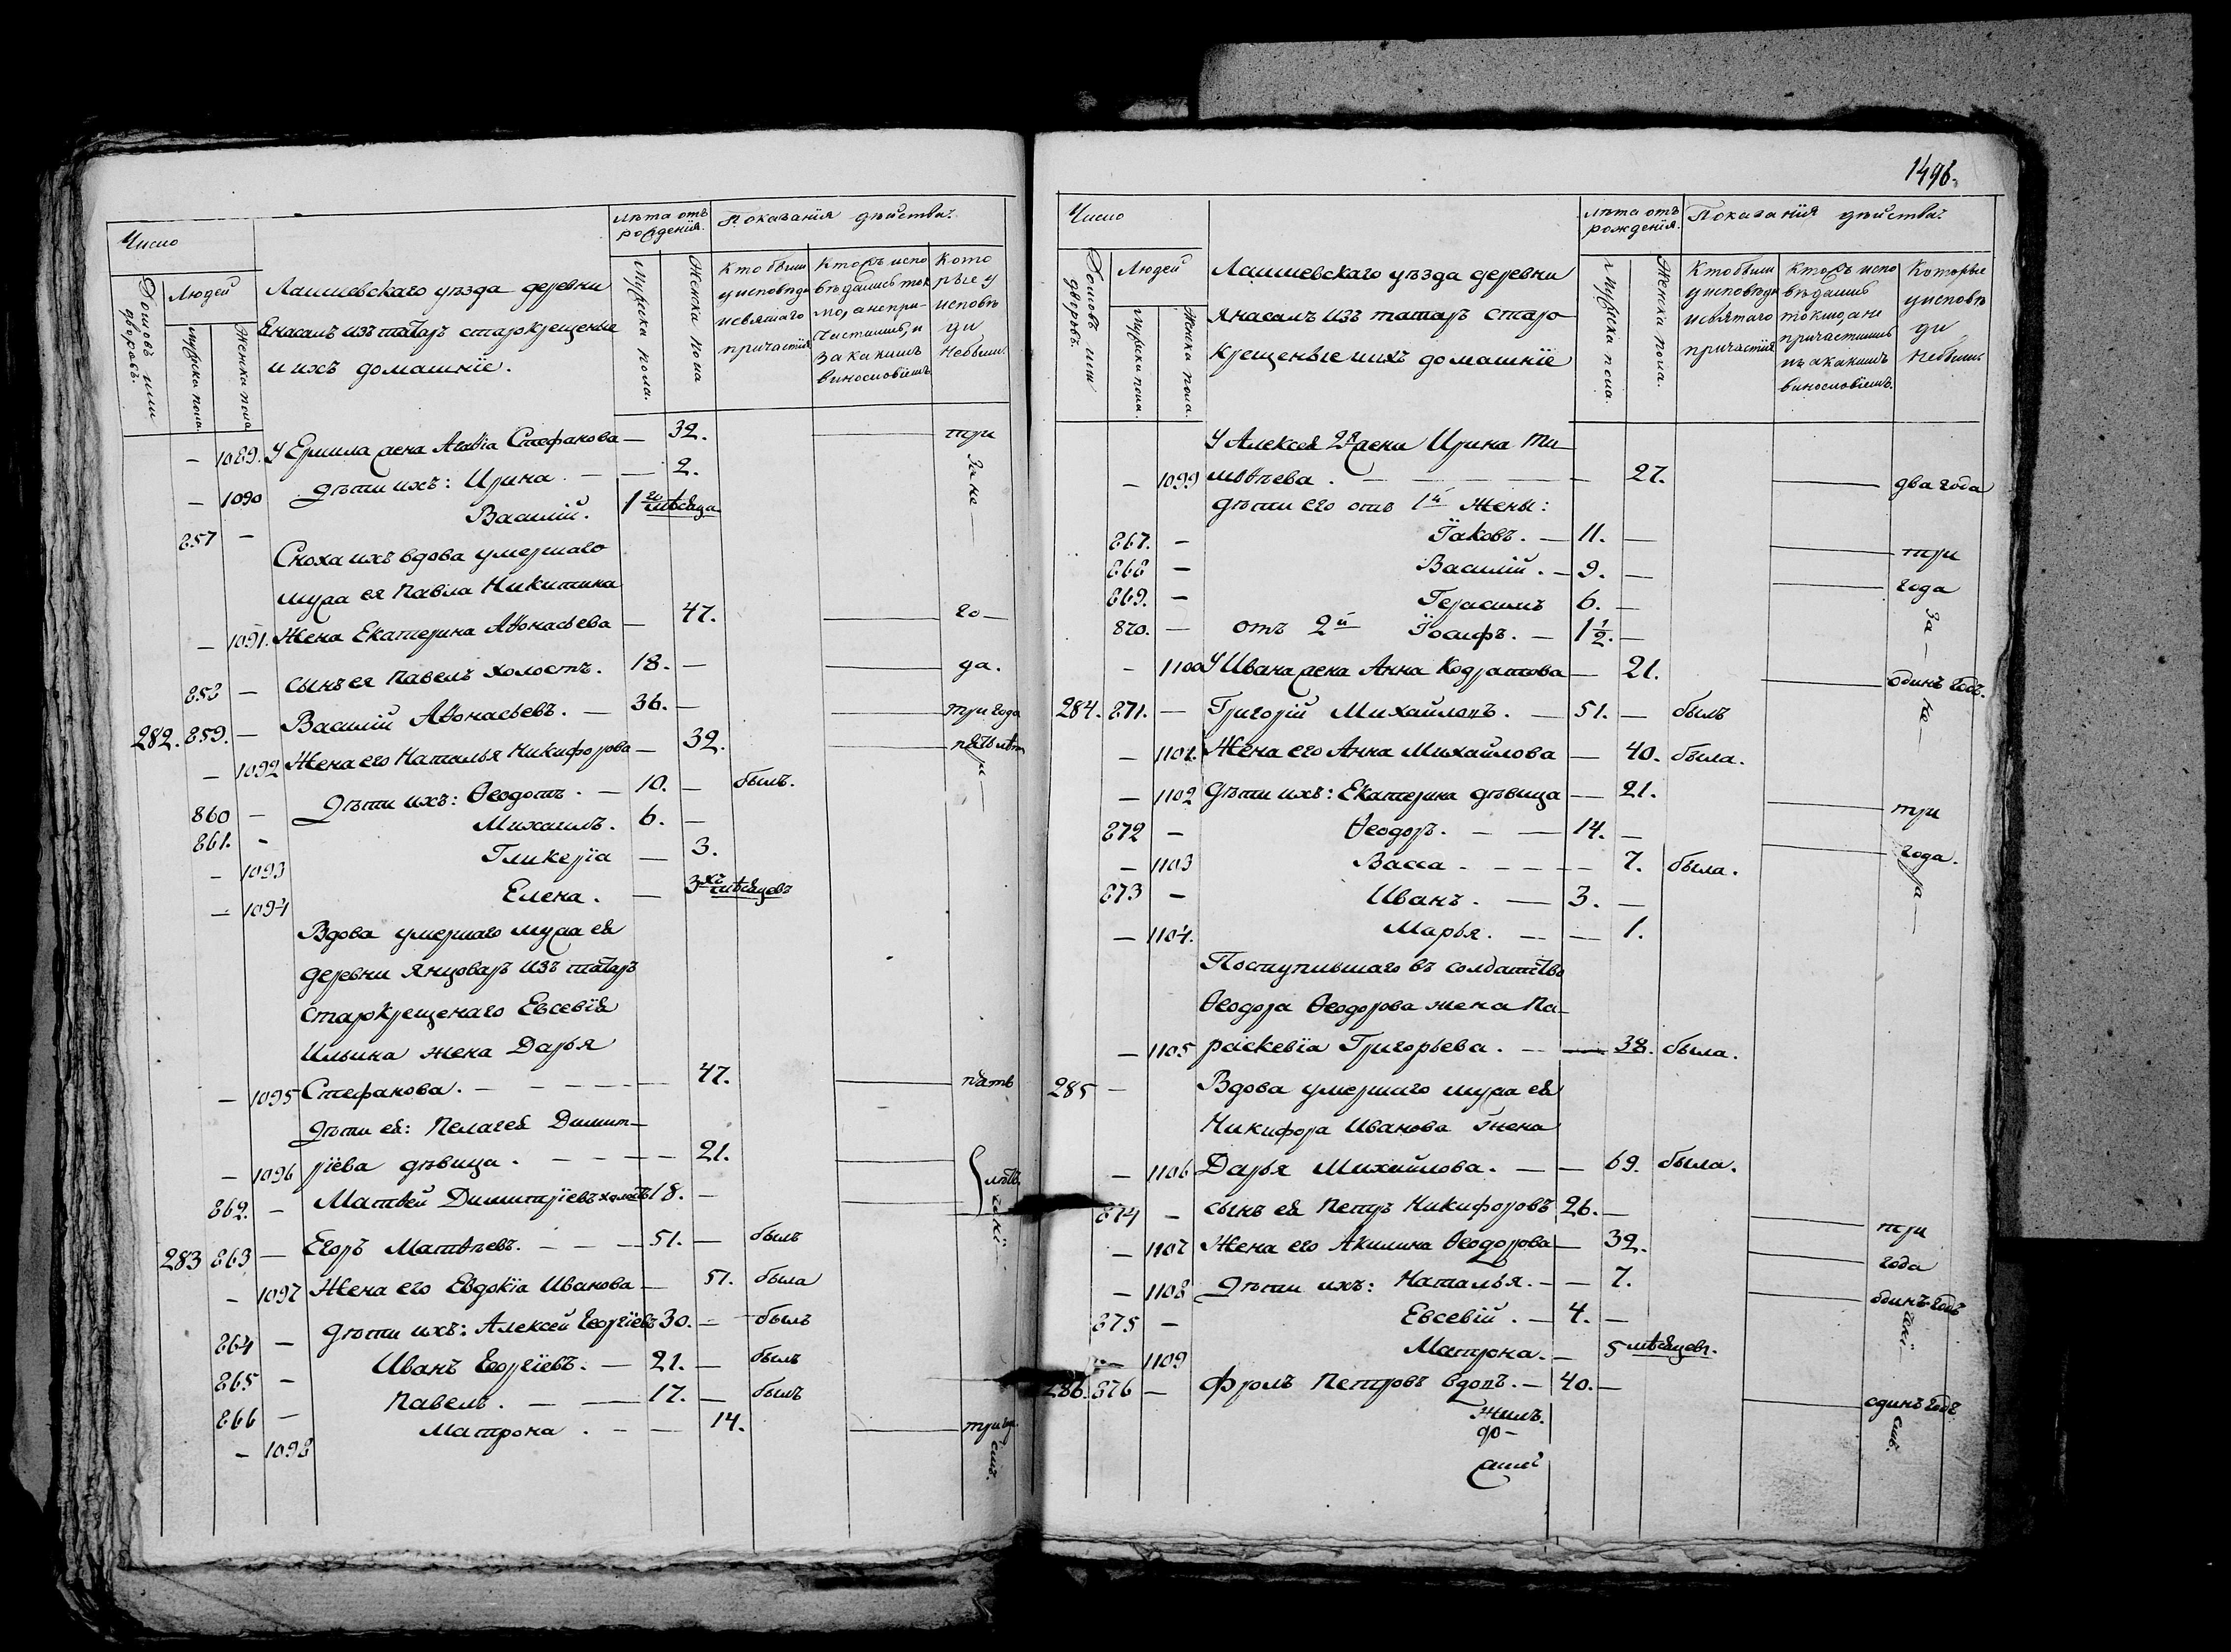 Число
лѣта отъ рожденія.
Показанія дѣйства:
Домовъ или дворовъ.
Людей
мужска пола.
Женска пола
Лаишевскаго уѣзда деревни
Янасалъ изъ татаръ старокрещеные
и ихъ домашніе.
Мужска пола.
Женска пола
Кто были у исповѣди и святаго причастія
Кто жъ исповѣдались токмо, а не причастились, и за какимъ винословіемъ
Которые у исповѣди не были.
— 1089. У Ермила жена Агафіа Стефанова — 32. — три
— 1090 дѣти ихъ: Ирина. — — 2.
857 — Василій. 1го мѣсяца
за не —
Сноха ихъ вдова умершаго
мужа ея Павла Никитина
— 1091. Жена Екатерина Афонасьева — 47. — го —
858 — сынъ ея Павелъ холостъ. 18. — — да.
282. 859. — Василій Афонасьевъ. — 36. — — три года
— 1092 Жена его Наталья Никифорова — 32. — пять лѣтъ
860 — Дѣти ихъ: Ѳеодотъ. — 10. — былъ.
861. - Михаилъ. 6. —
- 1093 Гликеріа — 3.
— 1094 Елена. — 3хъ мѣсяцевъ
Вдова умершаго мужа ея
деревни Янцоваръ изъ татаръ
старокрещенаго Евсевія
Ильина жена Дарья
— 1095 Стефанова. — — — — 47. — пять
Дѣти ея: Пелагея Димит—
— 1096 ріева дѣвица. — — — 21. —
862. — Матвей Димитріевъ холостъ 18. — — лѣтъ.
283 863 — Егоръ Матвѣевъ. — — — 51. — былъ
- 1097 Жена его Евдокіа Иванова — 51. была
864 — Дѣти ихъ: Алексей Георгіевъ 30. — былъ
865 - Иванъ Георгіевъ. — 21. — былъ
866 — Павелъ. — — 17. — былъ
— 1098 Матрона. — — 14. — три го.
сиѣ.
1496.
Число
лѣта отъ рожденія.
Показанія дѣйства:
Домовъ или дворовъ.
Людей
Мужска пола.
Женска пола.
Лаишевскаго уѣзда деревни
Янасалъ изъ татаръ старо
крещеные и ихъ домашніе
Мужска пола.
Женска пола.
Кто были у исповѣди и святаго причастія
Кто жъ исповѣдались токмо, а не причастились и за какимъ винословіемъ.
Которые у исповѣди не были
У Алексея 2я жена Ирина Ти—
— 1099 мофѣева. — — — — — 27. — два года
дѣти его отъ 1й жены:
867. — Іаковъ. — 11. — — три
868 — Василій. — 9. — — года
869. — Герасимъ 6. —
870. — отъ 2й Іосифъ. — 1 1/2. —
за —
- 1100 У Ивана жена Анна Кодратова — 21. — одинъ годъ.
не —
284. 871. — Григорій Михайловъ. — 51. — былъ
— 1101. Жена его Анна Михайлова — 40. была.
— 1102 Дѣти ихъ: Екатерина дѣвица — 21. — три
872 — Ѳеодоръ. — — 14. — — года.
— 1103 Васса. — — — — 7. была.
873 — Иванъ. — 3. —
— 1104. Марья. — — 1.
Поступившаго въ солдатство
Ѳеодора Ѳеодорова жена Па—
— 1105 раскевіа Григорьева. — — 38. была.
285 — Вдова умершаго мужа ея
Никифора Иванова жена
— 1106 Дарья Михайлова. — — 69. была.
874 — сынъ ея Петръ Никифоровъ 26. — — три
— 1107 Жена его Акилина Ѳеодорова — 32. — года
— 1108 Дѣти ихъ: Наталья. — — 7. — одинъ годъ
875 — Евсевій. — 4. —
— 1109 Матрона. — 5 мѣсяцевъ.
286. 876 — Фролъ Петровъ вдовъ. — 40. — — одинъ годъ
сиѣ.